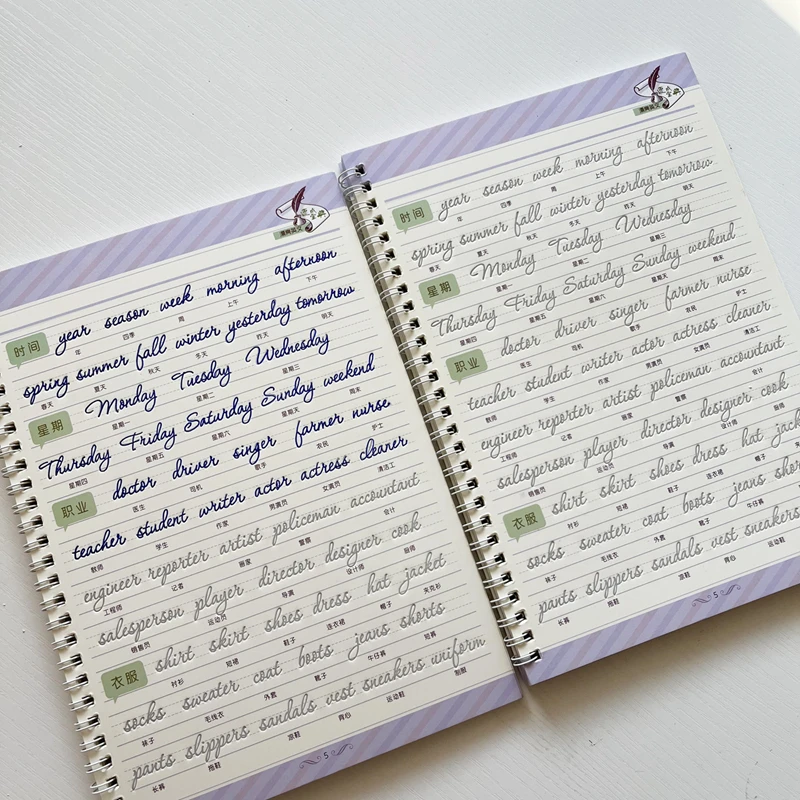 时间
year season week morning afternoon
年 四季 周 上午 下午
spring summer fall winter yesterday tomorrow
春天 夏天 秋天 冬天 昨天 明天
星期
Monday Tuesday Wednesday
星期一 星期二 星期三
Thursday Friday Saturday Sunday weekend
星期四 星期五 星期六 星期天 周末
职业
doctor driver singer farmer nurse
医生 司机 歌手 农民 护士
teacher student writer actor actress cleaner
教师 学生 作家 男演员 女演员 清洁工
engineer reporter artist policeman accountant
工程师 记者 画家 警察 会计
salesperson player director designer cook
销售员 运动员 导演 设计师 厨师
衣服
shirt skirt shoes dress hat jacket
衬衫 短裙 鞋子 连衣裙 帽子 夹克衫
socks sweater coat boots jeans shorts
袜子 毛线衣 外套 靴子 牛仔裤 短裤
pants slippers sandals vest sneakers uniform
长裤 拖鞋 凉鞋 背心 运动鞋 制服
5
时间
year season week morning afternoon
年 四季 周 上午 下午
spring summer fall winter yesterday tomorrow
春天 夏天 秋天 冬天 昨天 明天
星期
Monday Tuesday Wednesday
星期一 星期二 星期三
Thursday Friday Saturday Sunday weekend
星期四 星期五 星期六 星期天 周末
职业
doctor driver singer farmer nurse
医生 司机 歌手 农民 护士
teacher student writer actor actress cleaner
教师 学生 作家 男演员 女演员 清洁工
engineer reporter artist policeman accountant
工程师 记者 画家 警察 会计
salesperson player director designer cook
销售员 运动员 导演 设计师 厨师
衣服
shirt skirt shoes dress hat
衬衫 短裙 鞋子 连衣裙 帽子
socks sweater coat boots jeans
袜子 毛线衣 外套 靴子 牛仔裤
pants slippers sandals vest sneakers
长裤 拖鞋 凉鞋 背心 运动鞋
5